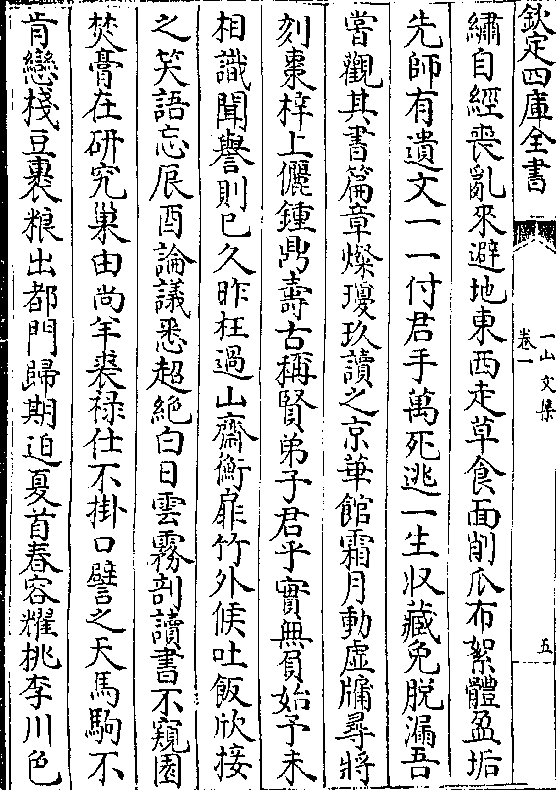 欽定四庫全書
一山文集
卷一
五
繡自經喪亂來避地東西走草食面削瓜布絮體盈垢
先師有遺文一一付君手萬死逃一生収藏免脱漏吾
嘗觀其書篇章燦瓊玖讀之京華館霜月動虚牖尋將
刻棗梓上儷鍾鼎壽古稱賢弟子君乎實無負始予未
相識聞譽則已久昨枉過山齋衡扉竹外候吐飯欣接
之笑語忘辰酉論議悉超絶白日雲霧剖讀書不窺園
焚膏在研究巢由尚年裘禄仕不掛口譬之天馬駒不
肯戀棧豆裹粮出都門歸期迫夏首春容耀挑李川色